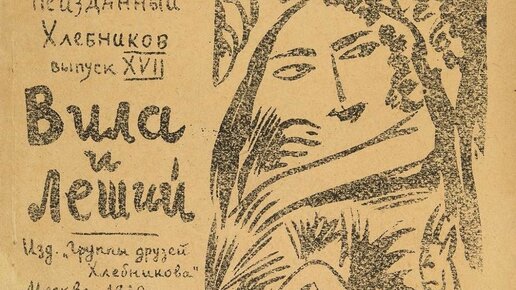 Неизданный
Хлебников
выпуск XVII
Вила
и
Леший
Изд. „Группы друзей
Хлебникова"
Москва